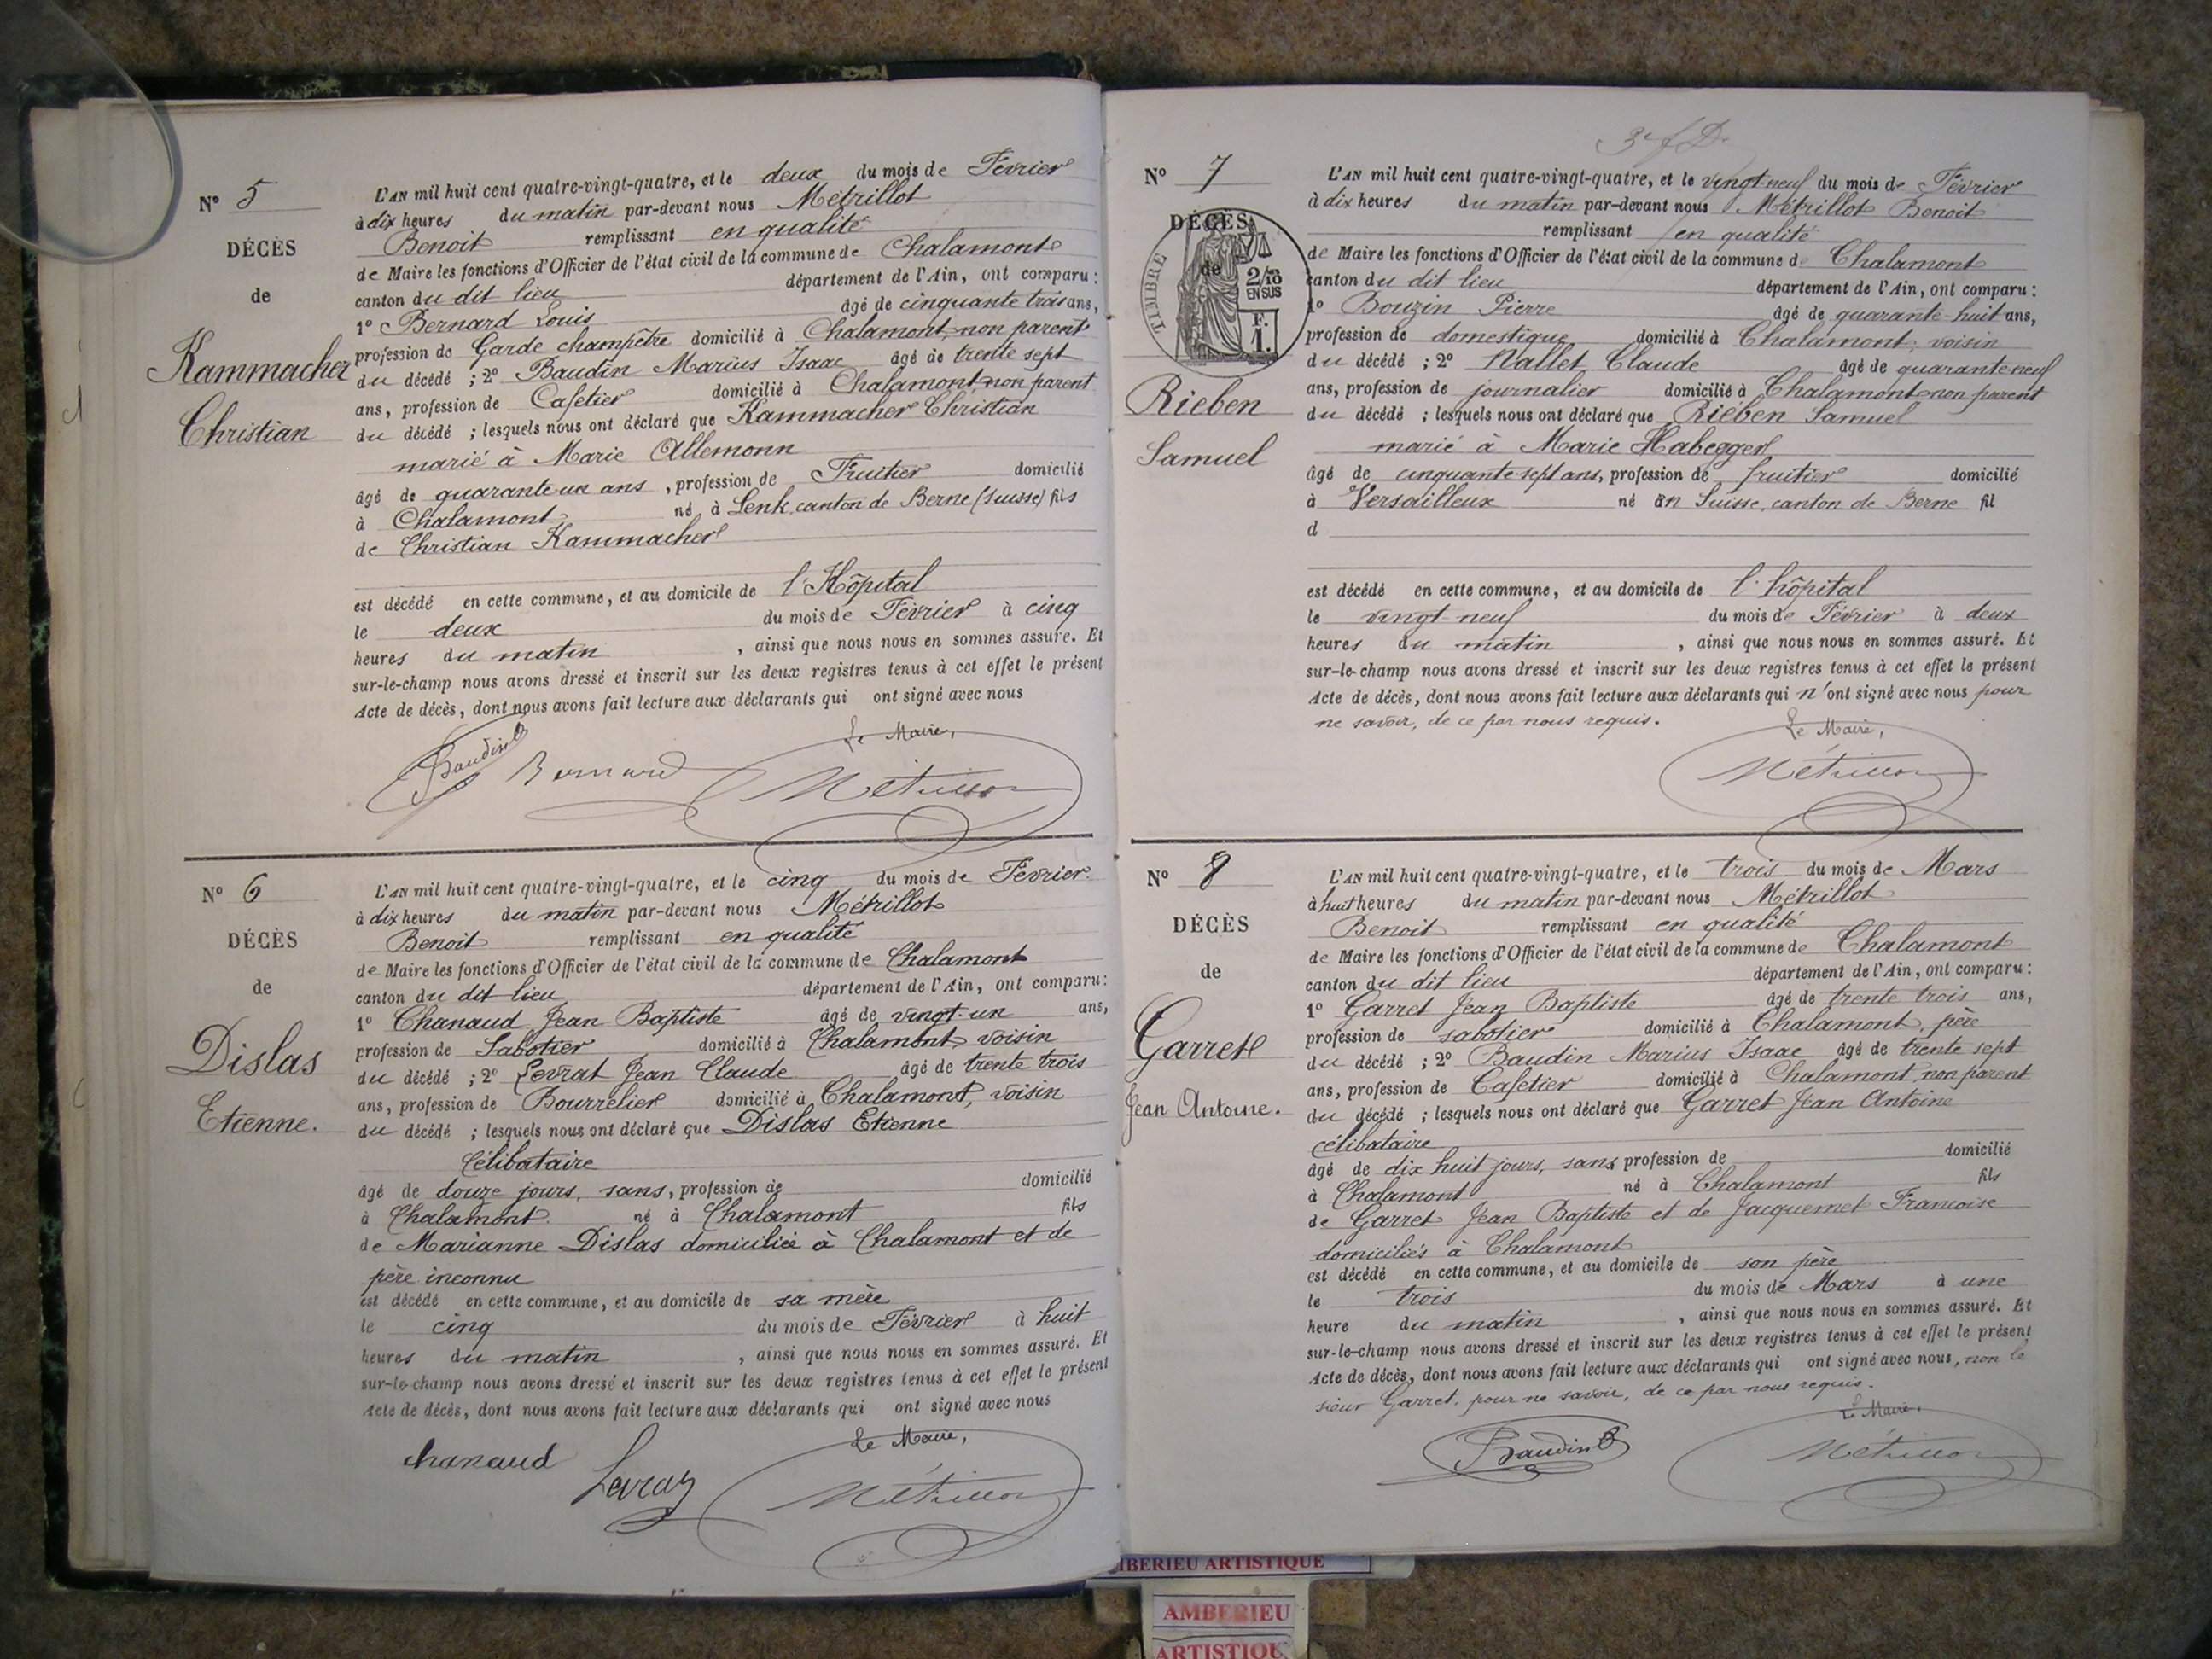 N° 5
DÉCÈS
de
Kammacher
Christian
L'AN mil huit cent quatre-vingt-quatre, et le deux du mois de Février
à dix heures du matin par-devant nous Métrillot
Benoit remplissant en qualité
de Maire les fonctions d'Officier de l'état civil de la commune de Chalamont
canton du dit lieu département de l'Ain, ont comparu :
1° Bernard Louis âgé de cinquante trois ans,
profession de Garde champêtre domicilié à Chalamont, non parent
du décédé ; 2° Baudin Marius Isaac âgé de trente sept
ans, profession de Cafetier domicilié à Chalamont, non parent
du décédé ; lesquels nous ont déclaré que Kammacher Christian
marié à Marie Allemonn
âgé de quarante un ans, profession de Fruitier domicilié
à Chalamont né à Lenk, canton de Berne (Suisse) fils
de Christian Kammacher
est décédé en cette commune, et au domicile de l'Hôpital
le deux du mois de Février à cinq
heures du matin, ainsi que nous nous en sommes assuré. Et
sur-le-champ nous avons dressé et inscrit sur les deux registres tenus à cet effet le présent
Acte de décès, dont nous avons fait lecture aux déclarants qui ont signé avec nous
Le Maire,
Baudin Bernard Métrillot
N° 6
DÉCÈS
de
Dislas
Etienne.
L'AN mil huit cent quatre-vingt-quatre, et le cinq du mois de Février
à dix heures du matin par-devant nous Métrillot
Benoit remplissant en qualité
de Maire les fonctions d'Officier de l'état civil de la commune de Chalamont
canton du dit lieu département de l'Ain, ont comparu :
1° Chanaud Jean Baptiste âgé de vingt-un ans,
profession de Sabotier domicilié à Chalamont, voisin
du décédé ; 2° Levrat Jean Claude âgé de trente trois
ans, profession de Bourrelier domicilié à Chalamont, voisin
du décédé ; lesquels nous ont déclaré que Dislas Etienne
Célibataire
âgé de douze jours, sans, profession de domicilié
à Chalamont. né à Chalamont fils
de Marianne Dislas domiciliée à Chalamont et de
père inconnu
est décédé en cette commune, et au domicile de sa mère
le cinq du mois de Février à huit
heures du matin, ainsi que nous nous en sommes assuré. Et
sur-le-champ nous avons dressé et inscrit sur les deux registres tenus à cet effet le présent
Acte de décès, dont nous avons fait lecture aux déclarants qui ont signé avec nous
Le Maire,
chanaud Levrat Métrillot
N° 7
DÉCÈS
de
TIMBRE
2/10
EN SUS
F.
1.
Rieben
Samuel
L'AN mil huit cent quatre-vingt-quatre, et le vingt-neuf du mois de Février
à dix heures du matin par-devant nous Métrillot Benoit
remplissant en qualité
de Maire les fonctions d'Officier de l'état civil de la commune de Chalamont
canton du dit lieu département de l'Ain, ont comparu :
1° Bouzin Pierre âgé de quarante-huit ans,
profession de domestique domicilié à Chalamont, voisin
du décédé ; 2° Nallet Claude âgé de quarante-neuf
ans, profession de journalier domicilié à Chalamont non parent
du décédé ; lesquels nous ont déclaré que Rieben Samuel
marié à Marie Habegger
âgé de cinquante-sept ans, profession de fruitier domicilié
à Versailleux né en Suisse, canton de Berne fil
d
est décédé en cette commune, et au domicile de l'hôpital
le vingt-neuf du mois de Février à deux
heures du matin, ainsi que nous nous en sommes assuré. Et
sur-le-champ nous avons dressé et inscrit sur les deux registres tenus à cet effet le présent
Acte de décès, dont nous avons fait lecture aux déclarants qui n'ont signé avec nous pour
ne savoir, de ce par nous requis.
Le Maire,
Métrillot
N° 8
DÉCÈS
de
Garret
Jean Antoine.
L'AN mil huit cent quatre-vingt-quatre, et le trois du mois de Mars
à huit heures du matin par-devant nous Métrillot
Benoit remplissant en qualité
de Maire les fonctions d'Officier de l'état civil de la commune de Chalamont
canton du dit lieu département de l'Ain, ont comparu :
1° Garret Jean Baptiste âgé de trente trois ans,
profession de sabotier domicilié à Chalamont, père
du décédé ; 2° Baudin Marius Isaac âgé de trente sept
ans, profession de Cafetier domicilié à Chalamont, non parent
du décédé ; lesquels nous ont déclaré que Garret Jean Antoine
célibataire
âgé de dix huit jours, sans profession de domicilié
à Chalamont né à Chalamont fils
de Garret Jean Baptiste et de Jacquemet Francoise
domiciliés à Chalamont
est décédé en cette commune, et au domicile de son père
le trois du mois de Mars à une
heure du matin, ainsi que nous nous en sommes assuré. Et
sur-le-champ nous avons dressé et inscrit sur les deux registres tenus à cet effet le présent
Acte de décès, dont nous avons fait lecture aux déclarants qui ont signé avec nous, non le
sieur Garret, pour ne savoir, de ce par nous requis.
Le Maire,
Baudin Métrillot
BERIEU ARTISTIQUE
AMBERIEU
ARTISTIQU